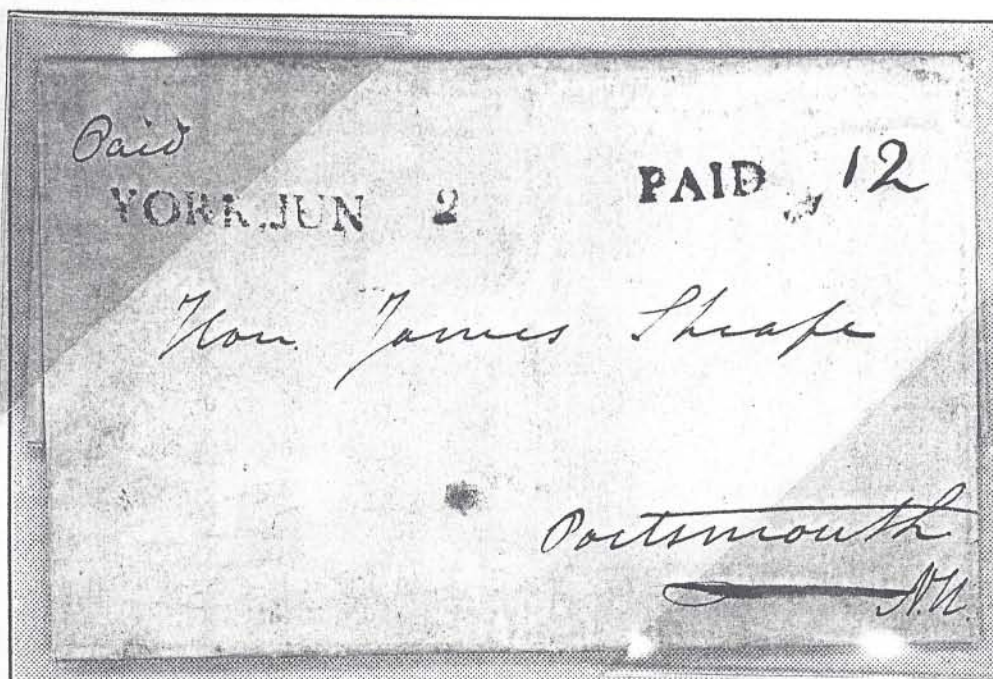 Paid
YORK JUN 2 PAID 12
Hon. James Sheafe
Portsmouth
N.H.